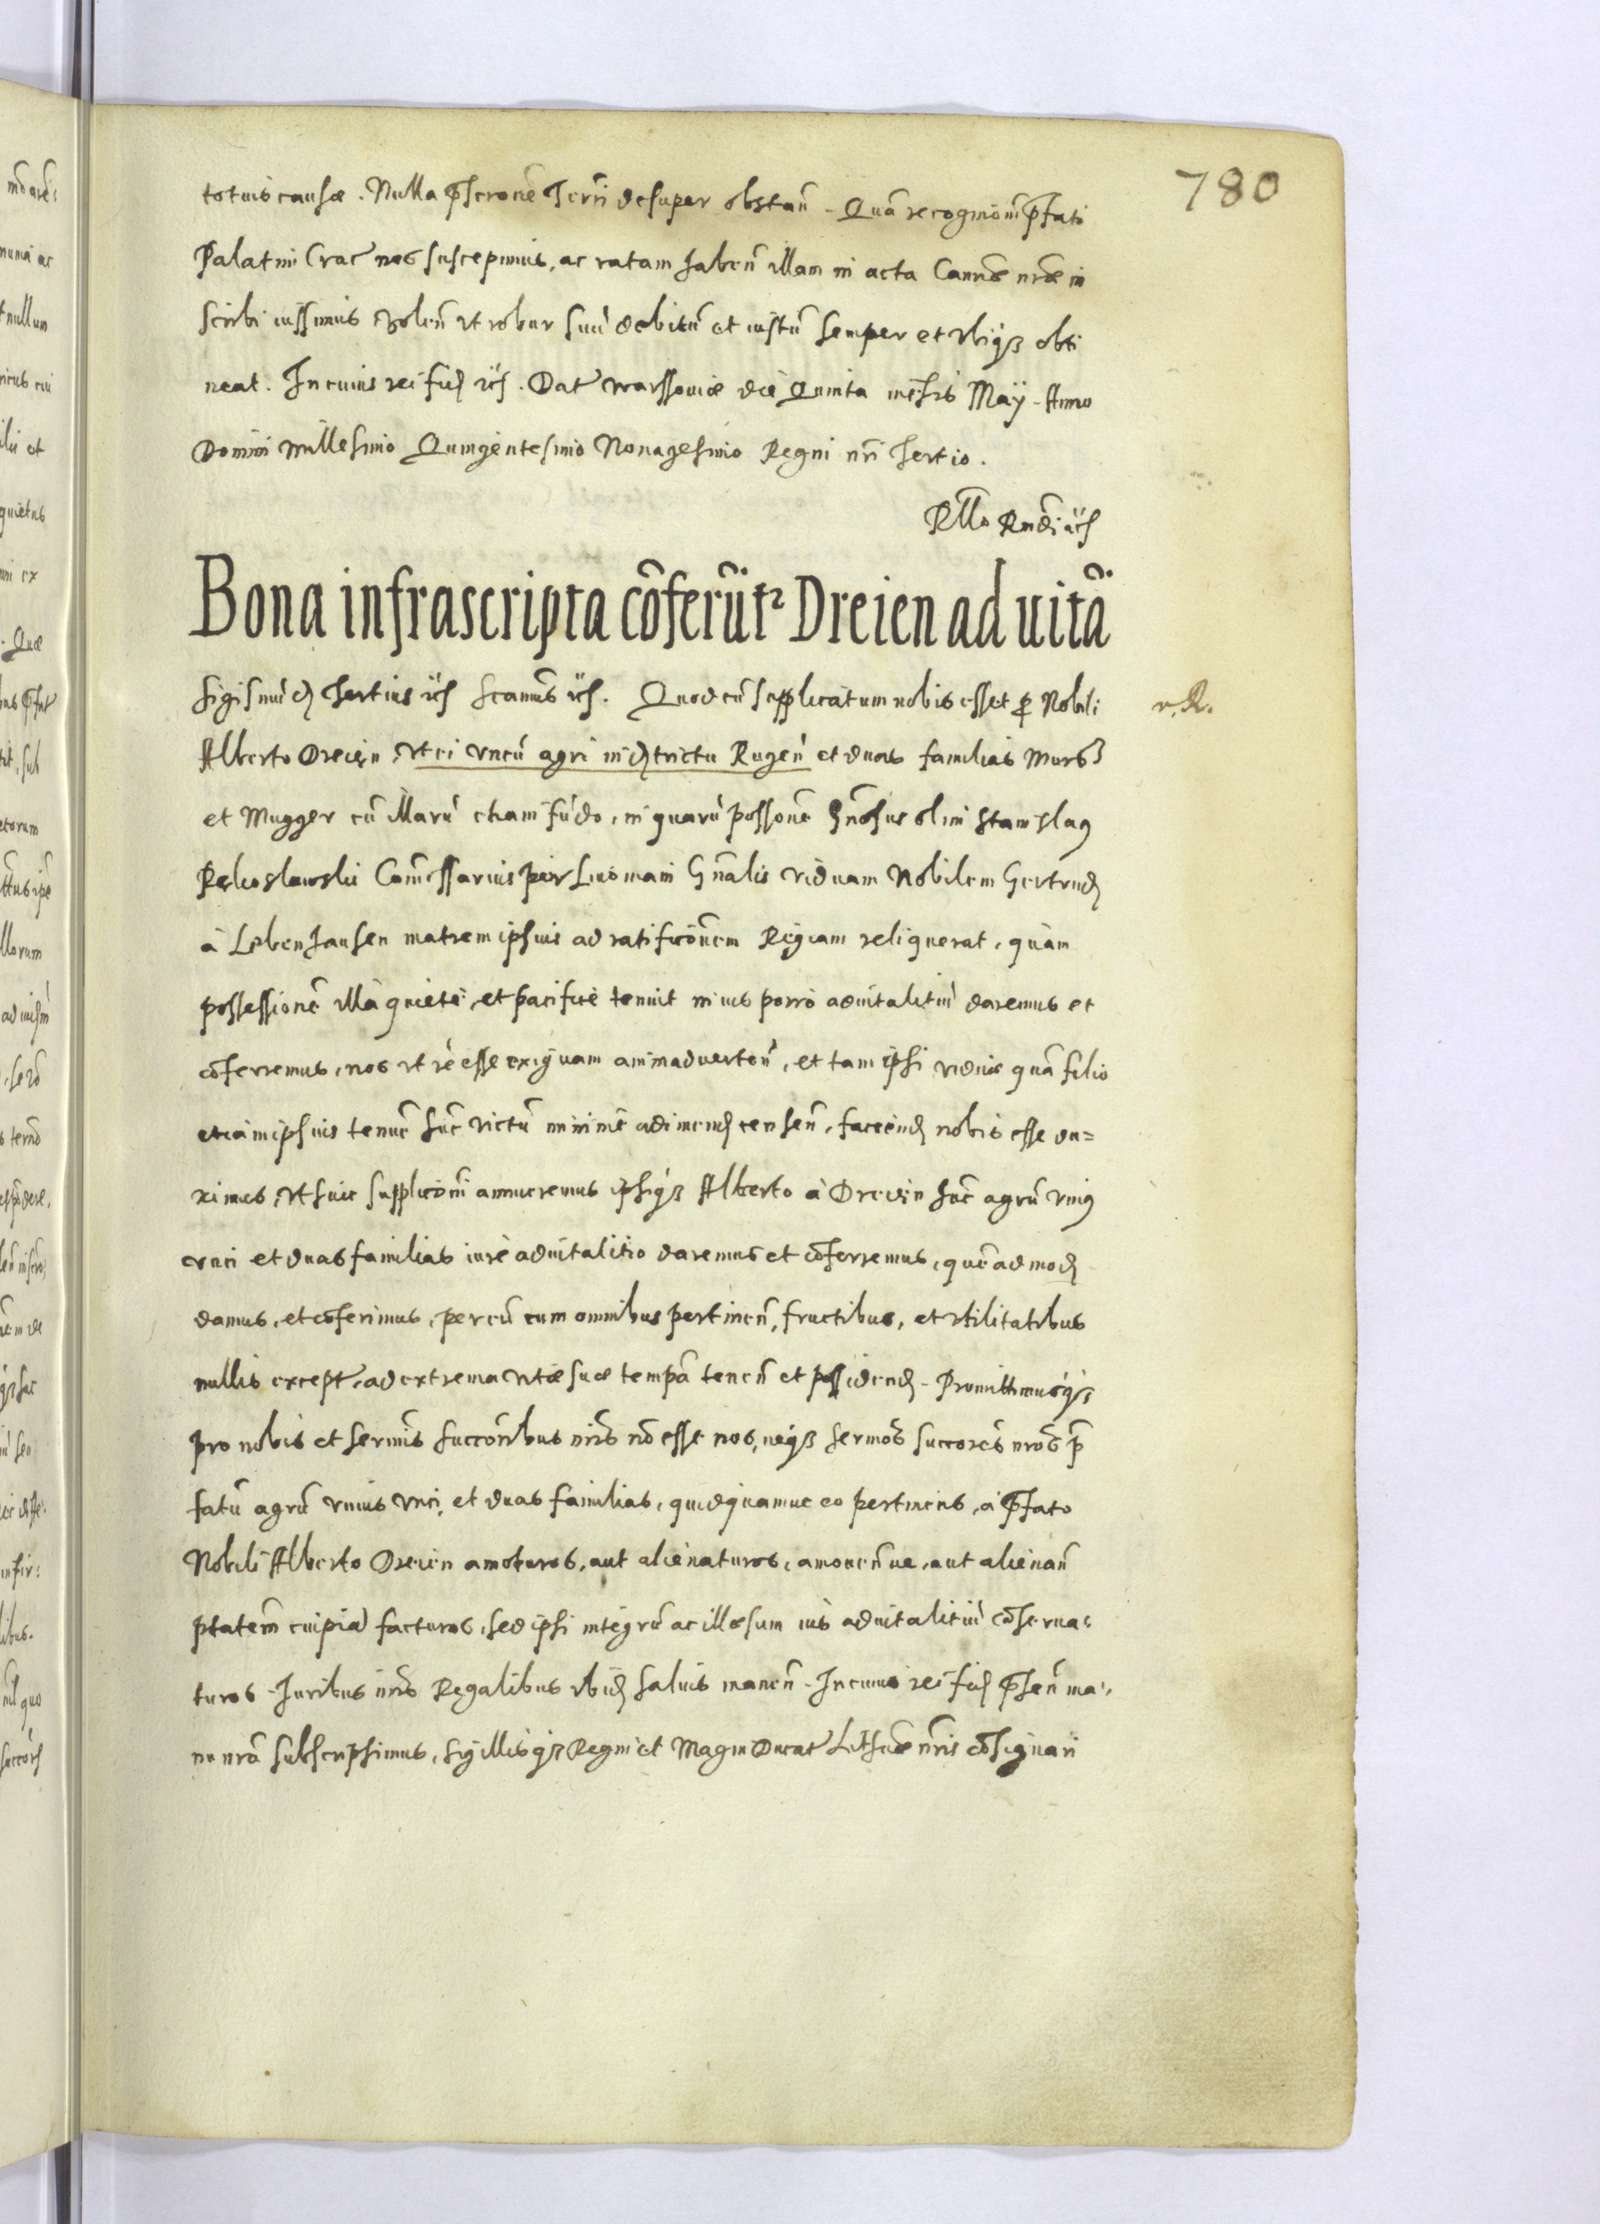 780
totius causae. Nulla p̄scrōne Terrī desuper obstañ. Quā recognitioñ p̄fati
Palatini Crac̃ nos suscepimus, ac ratam habeñ illam in acta Canc̃ nr̄ae in
scribi iussimus volen̄ ut robur suū debitū et iustū semper et ubiq₃ obti
neat. In cuius rei fid̨ ꝛc̃. Dat̃ Warssoviae die Quinta mēsis Maÿ. Anno
Domini Millesimo Quingentesimo Nonagesimo Regni nr̄i Tertio.
Rll̄o Rnd̄i ꝛc̃
Bona infrascripta cōferūtr Dreien ad uitā
Sigismūd̨ Tertius ꝛc̃ ꝛc̃. Quod cū supplicatum nobis esset p̱ Nobili
v. R.
Alberto Dreien, ut ei uncū agri in d̨trictu Rugeñ et duas familias Murs
et Mugger cū illarū etiam fūdo, in quarū possone Gn̄osus olim Stanislaꝯ
Pękoslawski Com̄essarius per Livoniam Gn̄alis viduam Nobilem Gertrud̨
à Lebenhausen matrem ipsius ad ratificōnem Regiam reliquerat, quàm
possessionē illā quietè, et pacificè tenuit in ius porro aduitalitiū daremus et
cōferremus, nos ut rē esse exiguam animadverteñ, et tam ipsi viduae quā filio
etiam ipsius tenuē hūc victū minimè adimend̨ censeñ, faciēnd̨ nobis esse du=
ximus, ut huic supplicōni annueremus ipsiq₃ Alberto à Dreien hūc agrū uniꝯ
unci et duas familias iurè aduitalitio daremus et cōferremus, quēadmod̨
damus, et cōferimus, per eū cum omnibus pertineñ, fructibus, et utilitatibus
nullis except̃, ad extrema vitae suae tempā teneñ et possidend̨. Promittimusq₃
pro nobis et serm̄is succōribus nr̄is nō esse nos, neq₃ sermōs succorēs nrōs p̄
fatū agrū unius unci, et duas familias, quidquamue eo pertinens, à p̄fato
Nobili Alberto Dreien amoturos, aut alienaturos, amoueñue, aut alienañ
ptatem̄ cuipiā facturos, sed ipsi integrū ac illaesum ius aduitalitiū cōserua=
turos. Iuribus nr̄is Regalibus ibid̨ saluis maneñ. In cuius rei fid̨ p̄señ ma=
nu nrā subscripsimus, sigillisq₃ Regni et Magni Ducat̃ Lithuae nr̄is cōsignari